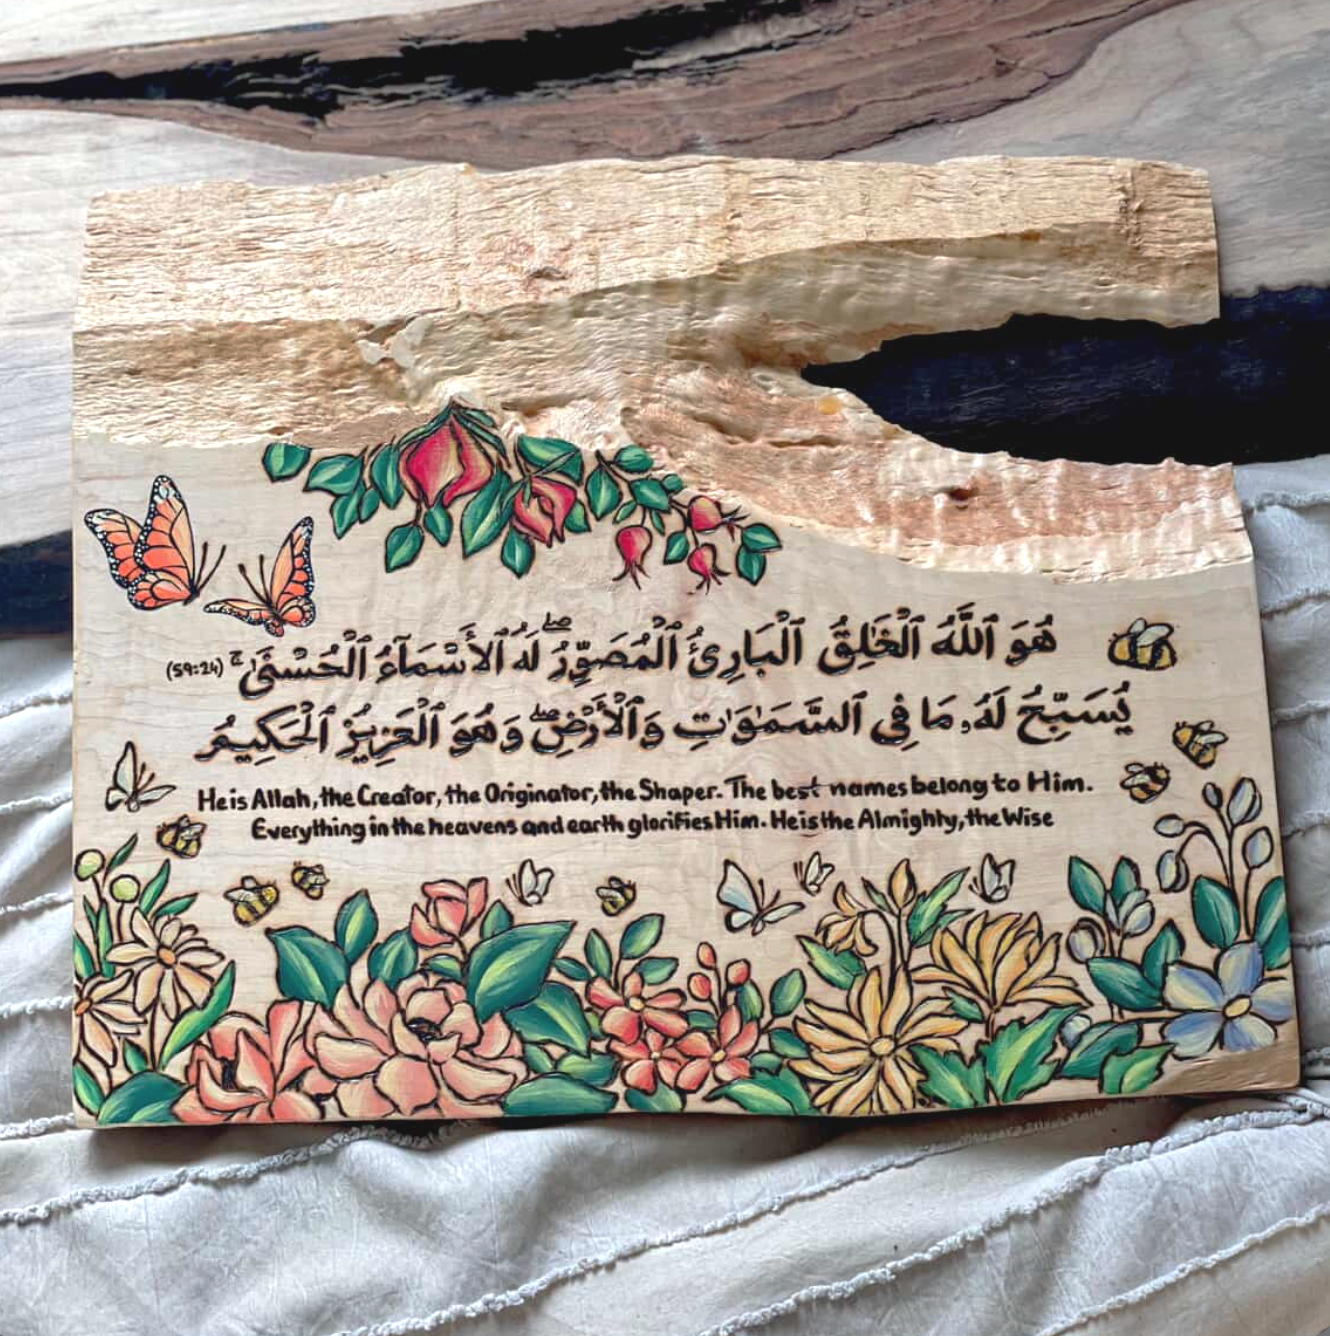 هُوَ ٱللَّهُ ٱلْخَـٰلِقُ ٱلْبَارِئُ ٱلْمُصَوِّرُ ۖ لَهُ ٱلْأَسْمَآءُ ٱلْحُسْنَىٰ ۚ (59:24)
يُسَبِّحُ لَهُۥ مَا فِى ٱلسَّمَـٰوَٰتِ وَٱلْأَرْضِ ۖ وَهُوَ ٱلْعَزِيزُ ٱلْحَكِيمُ
He is Allah, the Creator, the Originator, the Shaper. The best names belong to Him.
Everything in the heavens and earth glorifies Him. He is the Almighty, the Wise